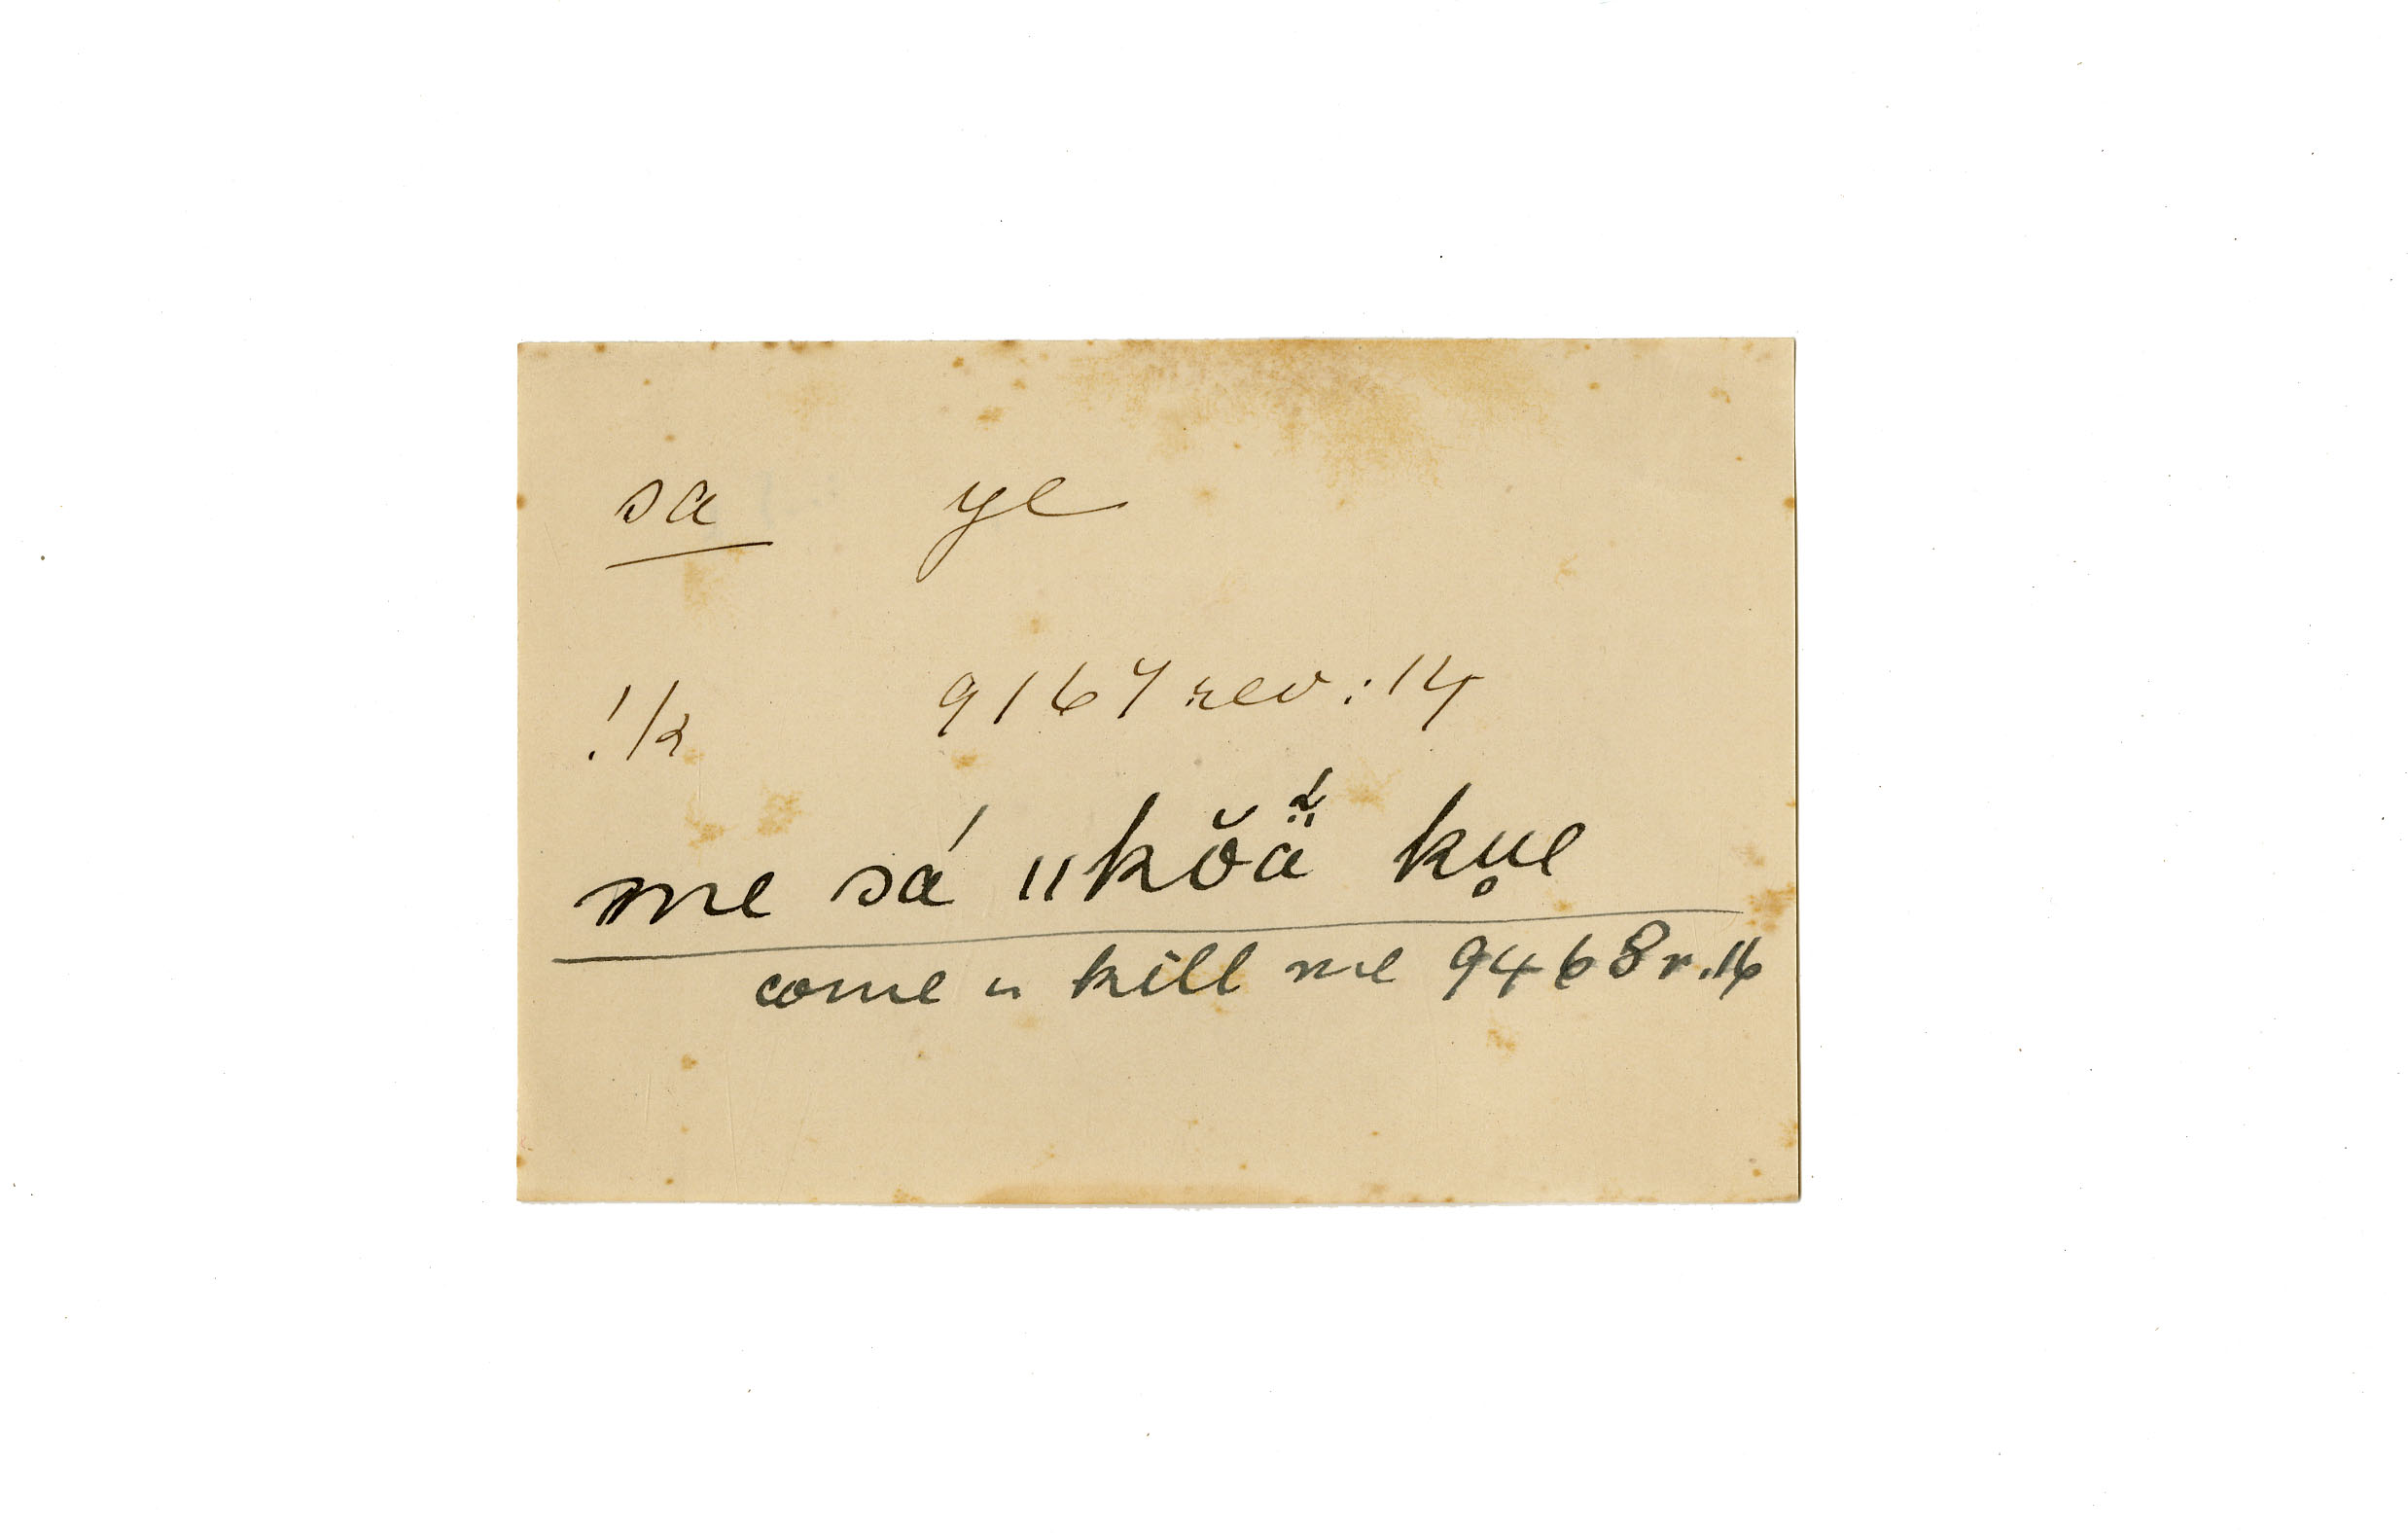 sa ye
!k 9167 rev: 14
me sá ǁkŏä kṷe
come & kill me 9468 r. 16